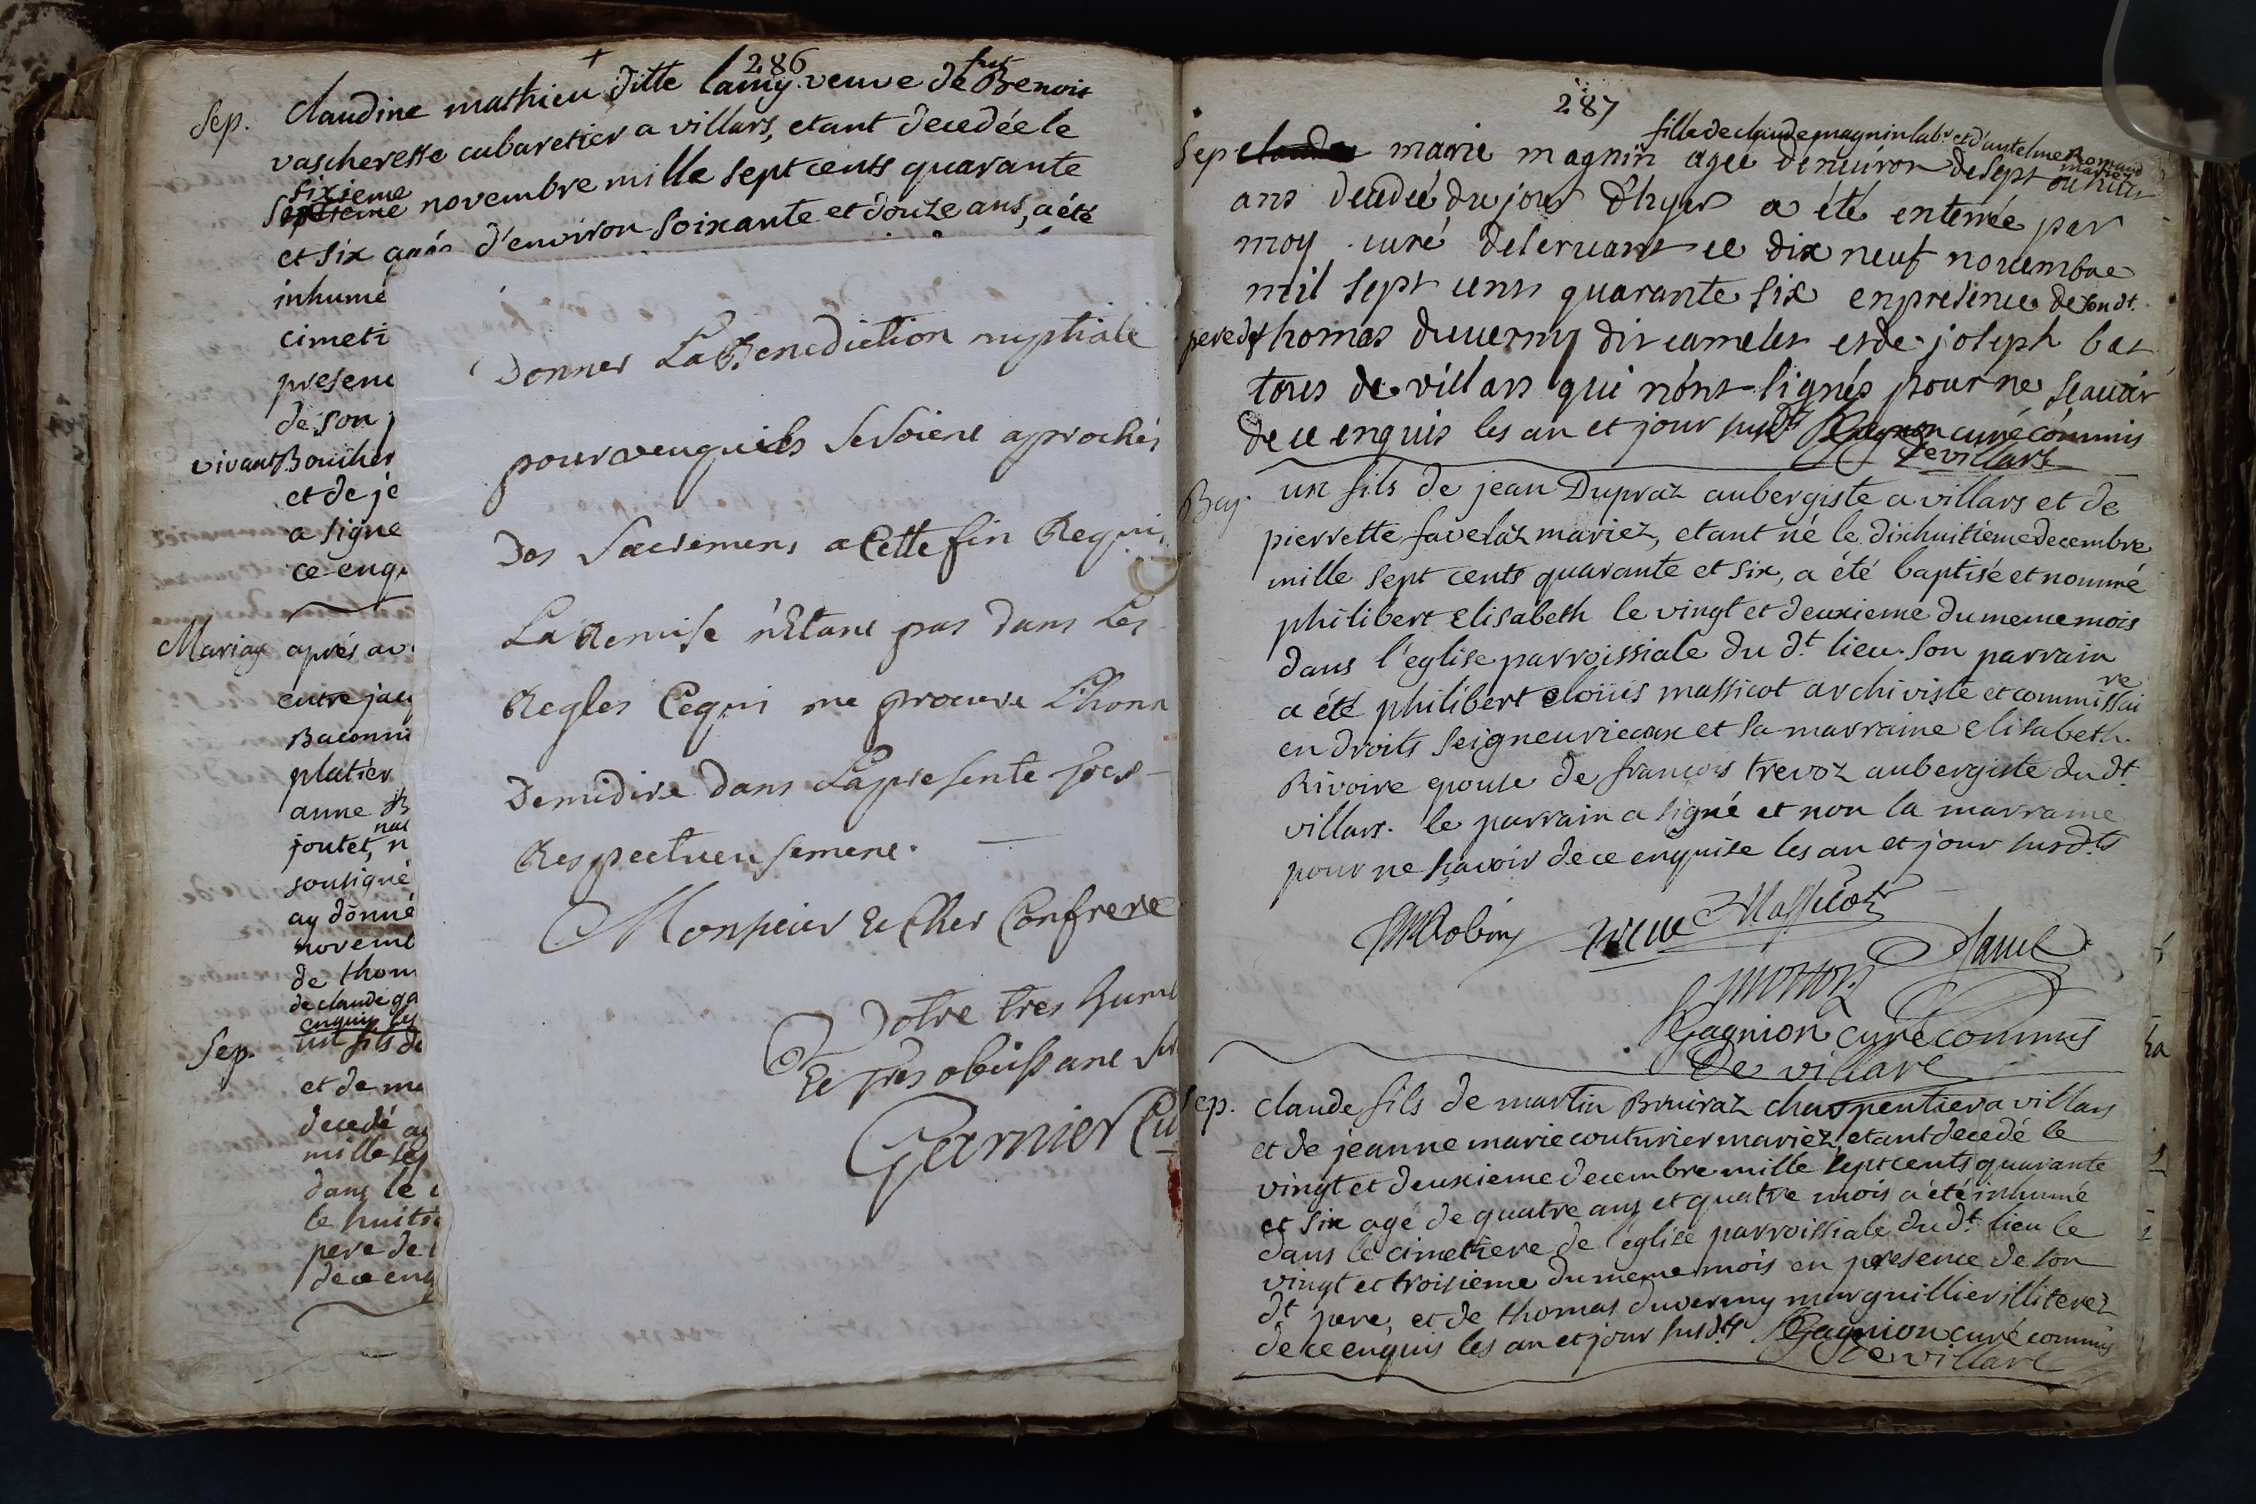 286
Sep. Claudine mathieu ditte lamy veuve de fut Benoit
vascheresse cabaretier a villars, etant decedée le
sixieme
septieme novembre mille sept cents quarante
et six agée d'environ soixante et douze ans, a été
inhumé
cimeti
presenc
de son
vivant Boucher
et de je
a signe
ce enqu
Mariag après av
entre jacq
Baconni
platier
anne B
joutet, n
soussigné
ay donné
novemb
de thom
de claude ga
enquis les
Sep. un fils de
et de ma
decedé au
mille sep
dans le c
le huitie
pere de
de ce enq
Donner La Benediction nuptiale
pourveuquils Sesoient aprochés
Des Sacremens a Cette fin Requis
La Remise n'Etant pas dans Les
Regles Cequi me procure L'honn
Demidire dans Lapresente tres
Respectueusement.
Monsieur et Cher Confrere
Votre tres humb
Et tres obeissant Ser
Garnier Cu
287
fille de claude magnin lab.r et d'antelme Romand
mariez
Sep claude marie magnin agee d'enuiron de sept ou huit
ans decedeé du jour d'hyer a été enterrée par
moy curé deseruant ce dix neuf nouembre
mil sept cents quarante six en presence de son dt.
pere et de thomas duuerny dit camelet et de joseph bas
tous de villars qui n'ont signés pour ne sçauoir
de ce enquis les an et jour susdts Gagnion curé commis
de villars
Bap. un fils de jean Dupraz aubergiste a villars et de
pierrette favelaz mariez, etant né le dixhuitieme decembre
mille sept cents quarante et six, a été baptisé et nommé
philibert Elisabeth le vingt et deuxieme du meme mois
dans l'eglise parroissiale du dt. lieu. son parrain
a été philibert eloüis massicot archiviste et commissaire
en droits seigneuriaux et sa marraine elisabeth
Rivoire epouse de françois trevoz aubergiste du dt.
villars. le parrain a signé et non la marraine
pour ne sçavoir de ce enquise les an et jour susdts
Robin Massicot
Gagnion curé commis
de villars
Sep. claude fils de martin Bruiraz charpentier a villars
et de jeanne marie couturier mariez, etant decedé le
vingt et deuxieme decembre mille sept cents quarante
et six agé de quatre ans et quatre mois a été inhumé
dans le cimetiere de l'eglise parroissiale du dt. lieu le
vingt et troisieme du meme mois en presence de son
dt. pere, et de thomas duverny marguillier illiterez
de ce enquis les an et jour susdts Gagnion curé commis
de villars